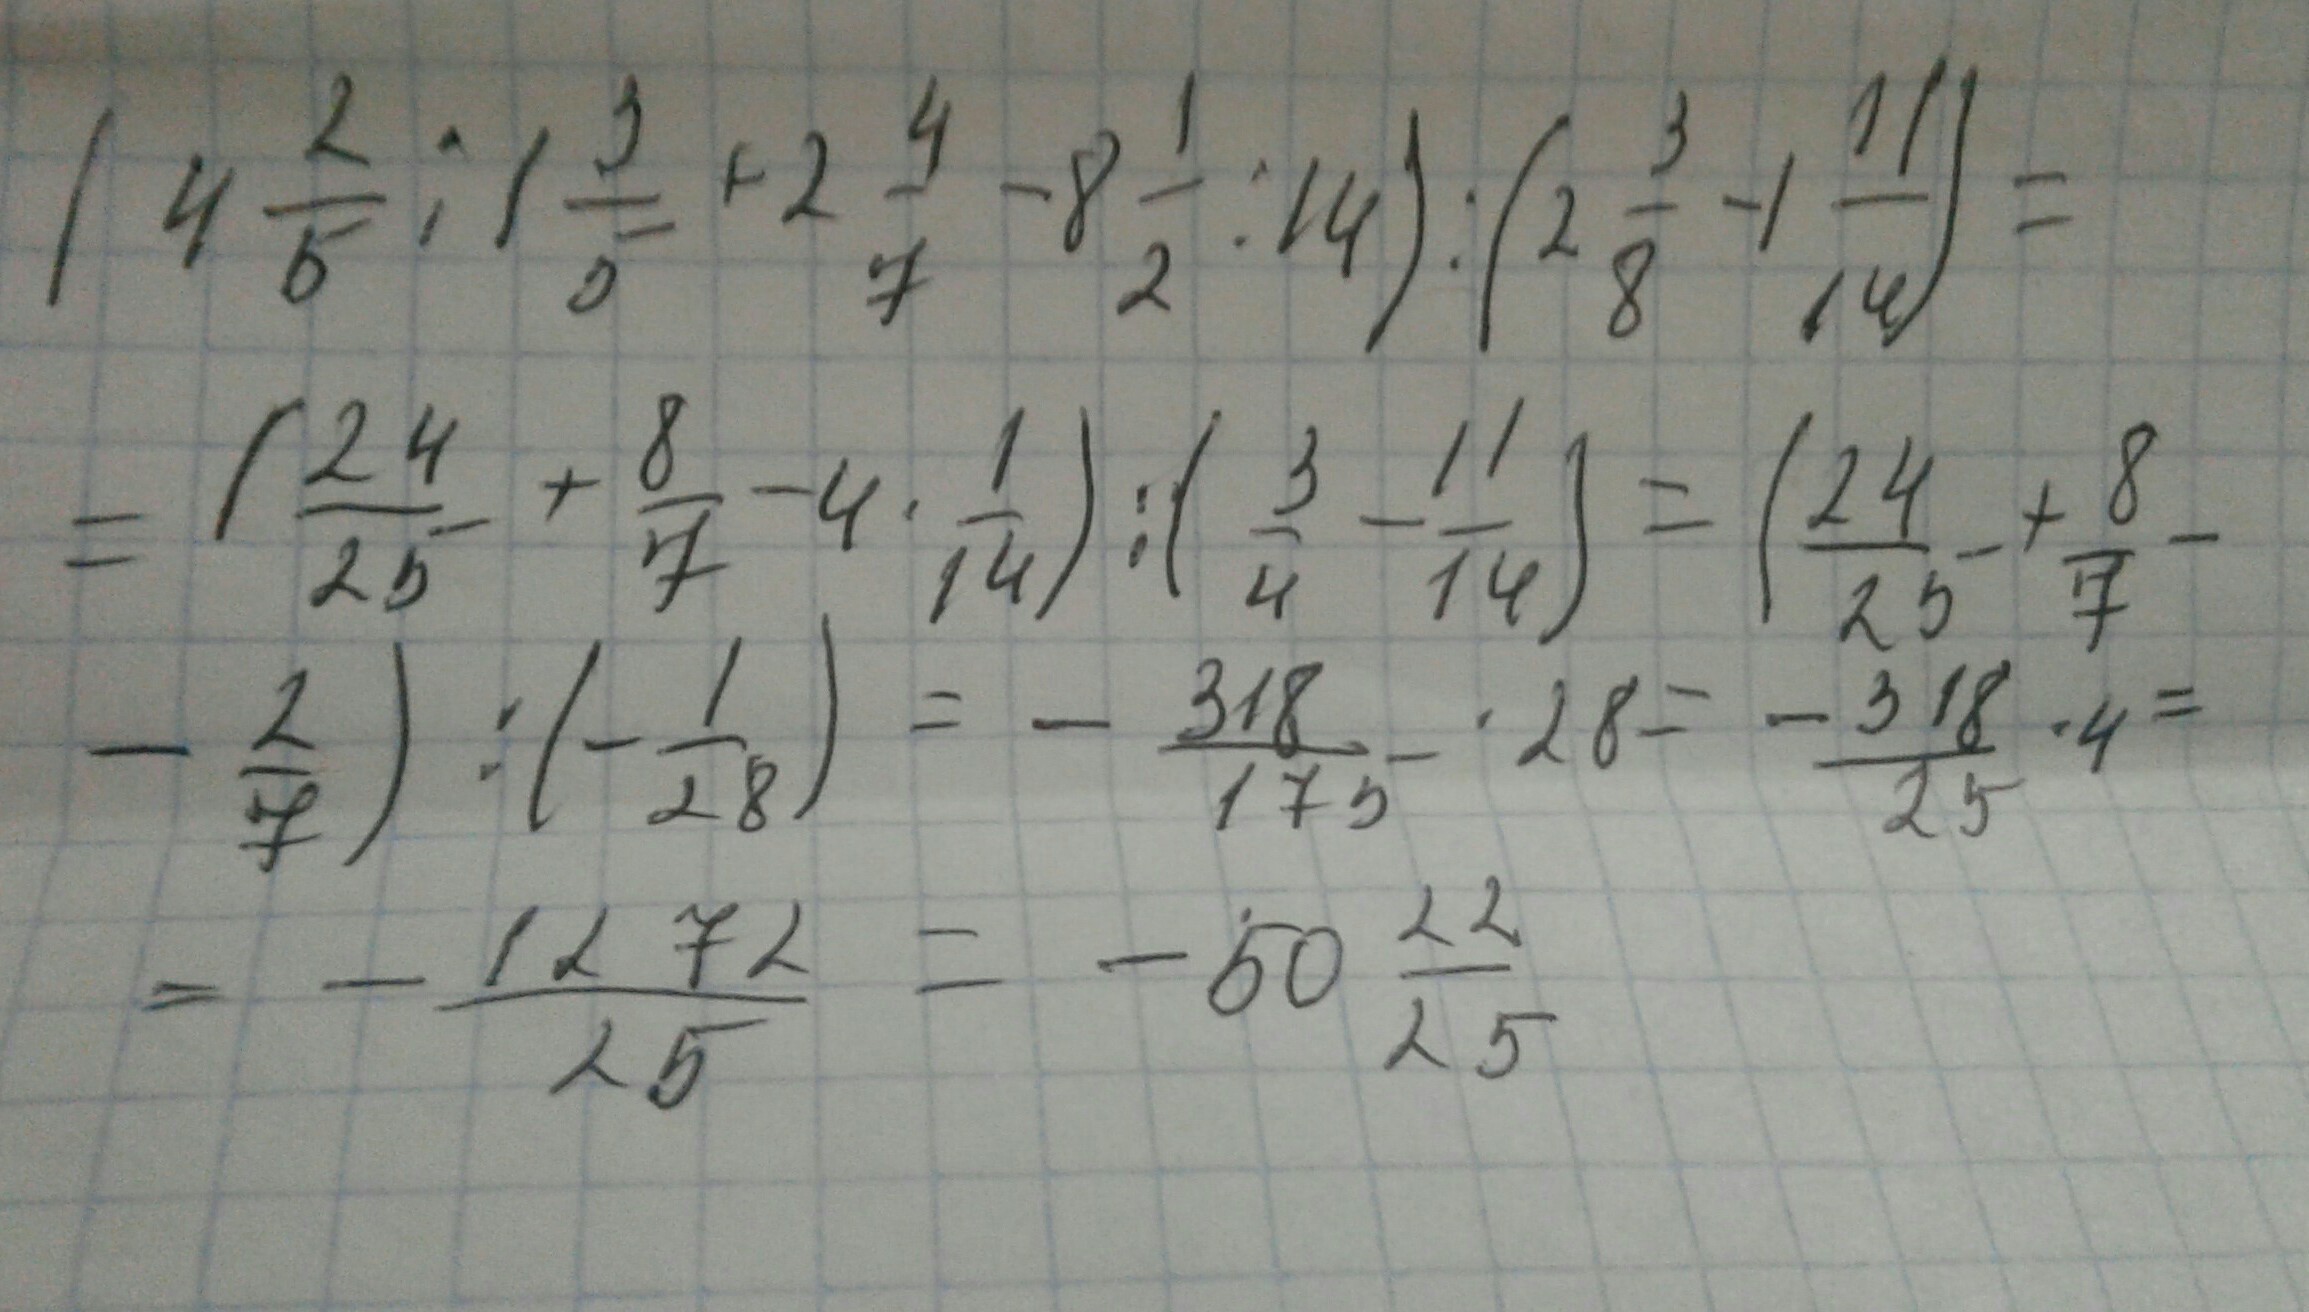 (4 2/5 : 1 3/5 + 2 4/7 - 8 1/2 : 14) : (2 3/8 - 1 11/14) =
= (24/25 + 8/7 - 4 · 1/14) : (3/4 - 11/14) = (24/25 + 8/7 -
- 2/7) : (- 1/28) = - 318/175 · 28 = - 318/25 · 4 =
= - 1272/25 = - 50 22/25